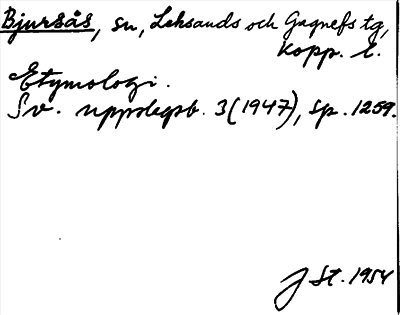 Bjursås, sn, Leksands och Gagnefs tg,
Kopp. l.
Etymologi.
Sv. uppslagsb. 3 (1947), sp. 1259.
J St. 1954